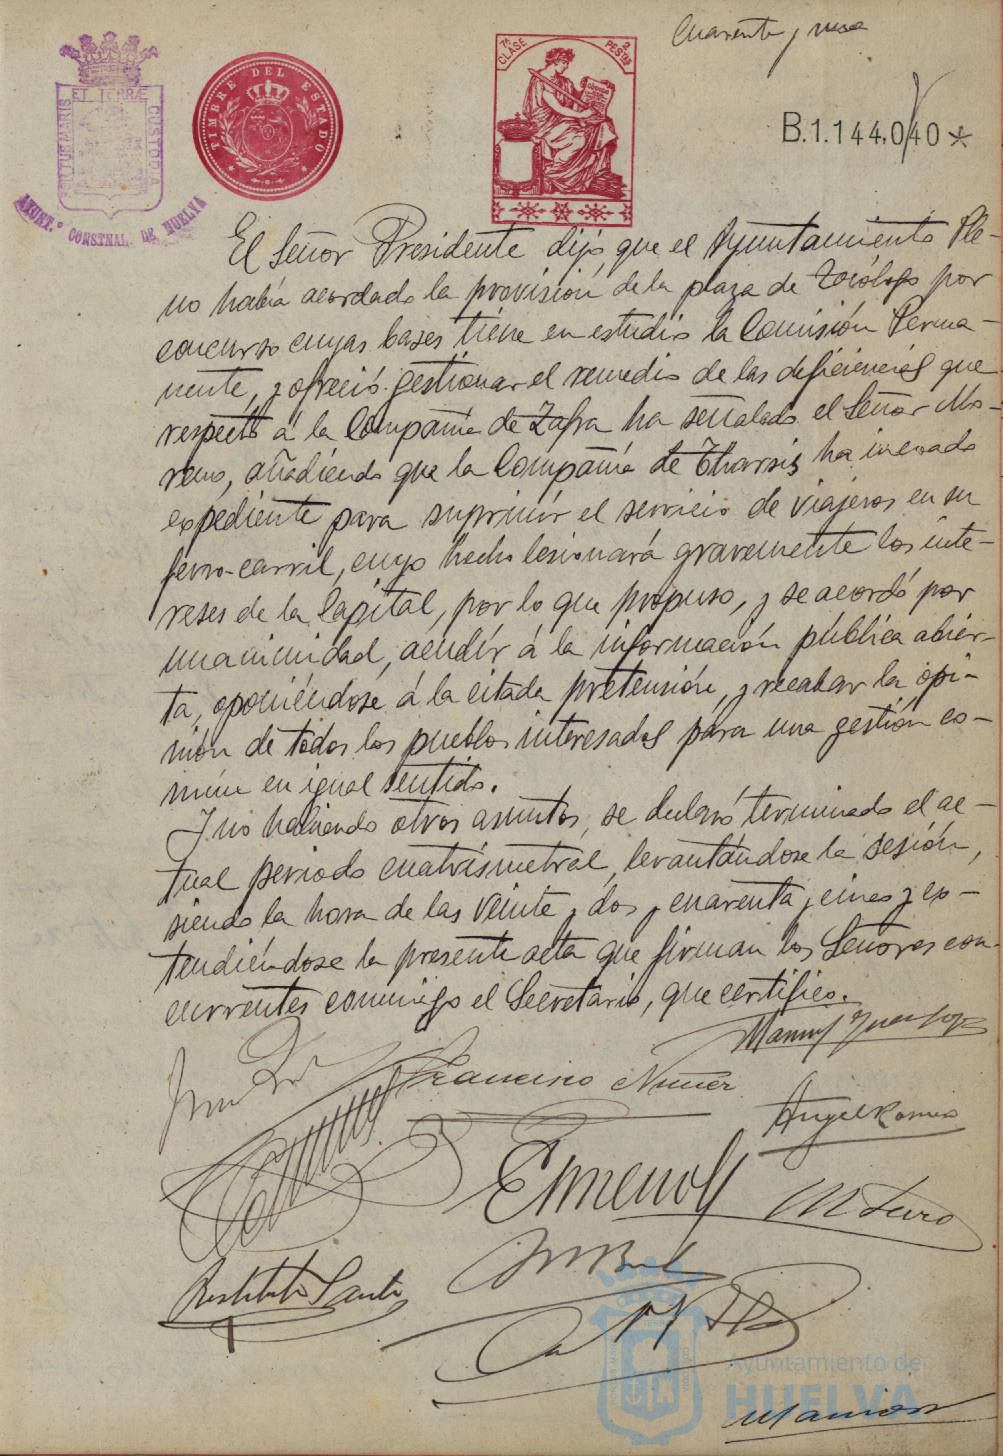 Cuarenta y una
ET TERRÆ
PORTUS MARIS
CUSTODIA
AYUNT.º CONSTNAL. DE HUELVA
TIMBRE DEL ESTADO
7ª CLASE
2 PESTAS
B.1.144.040 *
El Señor Presidente dijo que el Ayuntamiento Ple-
no había acordado la provisión de la plaza de Tocólogo por
concurso cuyas bases tiene en estudio la Comisión Perma-
nente, y ofreció gestionar el remedio de las deficiencias que
respecto á la Compañía de Zafra ha señalado el Señor Mo-
reno, añadiendo que la Compañía de Tharsis ha incoado
expediente para suprimir el servicio de viajeros en su
ferro-carril, cuyo hecho lesionará gravemente los inte-
reses de la Capital, por lo que propuso, y se acordó por
unanimidad, acudir á la información pública abier-
ta, oponiéndose á la citada pretensión, y recabar la opi-
nión de todos los pueblos interesados para una gestión co-
mún en igual sentido.
Y no habiendo otros asuntos, se declaró terminado el ac-
tual periodo cuatrismetral, levantándose la sesión,
siendo la hora de las veinte y dos y cuarenta y cinco y ex-
tendiéndose la presente acta que firman los Señores con-
currentes conmigo el Secretario, que certifico.
Manuel
Francisco Nuñez
Angel Romero
Restituto Santos
Ayuntamiento de
HUELVA